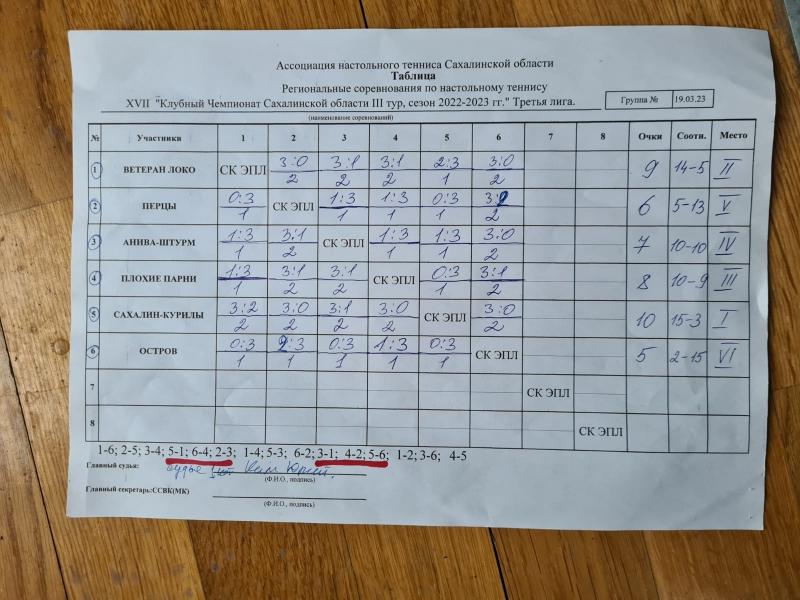 Ассоциация настольного тенниса Сахалинской области
Таблица
Региональные соревнования по настольному теннису
XVII "Клубный Чемпионат Сахалинской области III тур, сезон 2022-2023 гг." Третья лига. Группа № 19.03.23
(наименование соревнований)
№ Участники 1 2 3 4 5 6 7 8 Очки Соотн. Место
1 ВЕТЕРАН ЛОКО СК ЭПЛ 3:0 3:1 3:1 2:3 3:0 9 14-5 II
2 2 2 1 2
2 ПЕРЦЫ 0:3 СК ЭПЛ 1:3 1:3 0:3 3:2 6 5-13 V
1 1 1 1 2
3 АНИВА-ШТУРМ 1:3 3:1 СК ЭПЛ 1:3 1:3 3:0 7 10-10 IV
1 2 1 1 2
4 ПЛОХИЕ ПАРНИ 1:3 3:1 3:1 СК ЭПЛ 0:3 3:1 8 10-9 III
1 2 2 1 2
5 САХАЛИН-КУРИЛЫ 3:2 3:0 3:1 3:0 СК ЭПЛ 3:0 10 15-3 I
2 2 2 2 2
6 ОСТРОВ 0:3 2:3 0:3 1:3 0:3 СК ЭПЛ 5 2-15 VI
1 1 1 1 1
7 СК ЭПЛ
8 СК ЭПЛ
1-6; 2-5; 3-4; 5-1; 6-4; 2-3; 1-4; 5-3; 6-2; 3-1; 4-2; 5-6; 1-2; 3-6; 4-5
Главный судья: Судья
(Ф.И.О., подпись)
Главный секретарь:ССВК(МК)
(Ф.И.О., подпись)